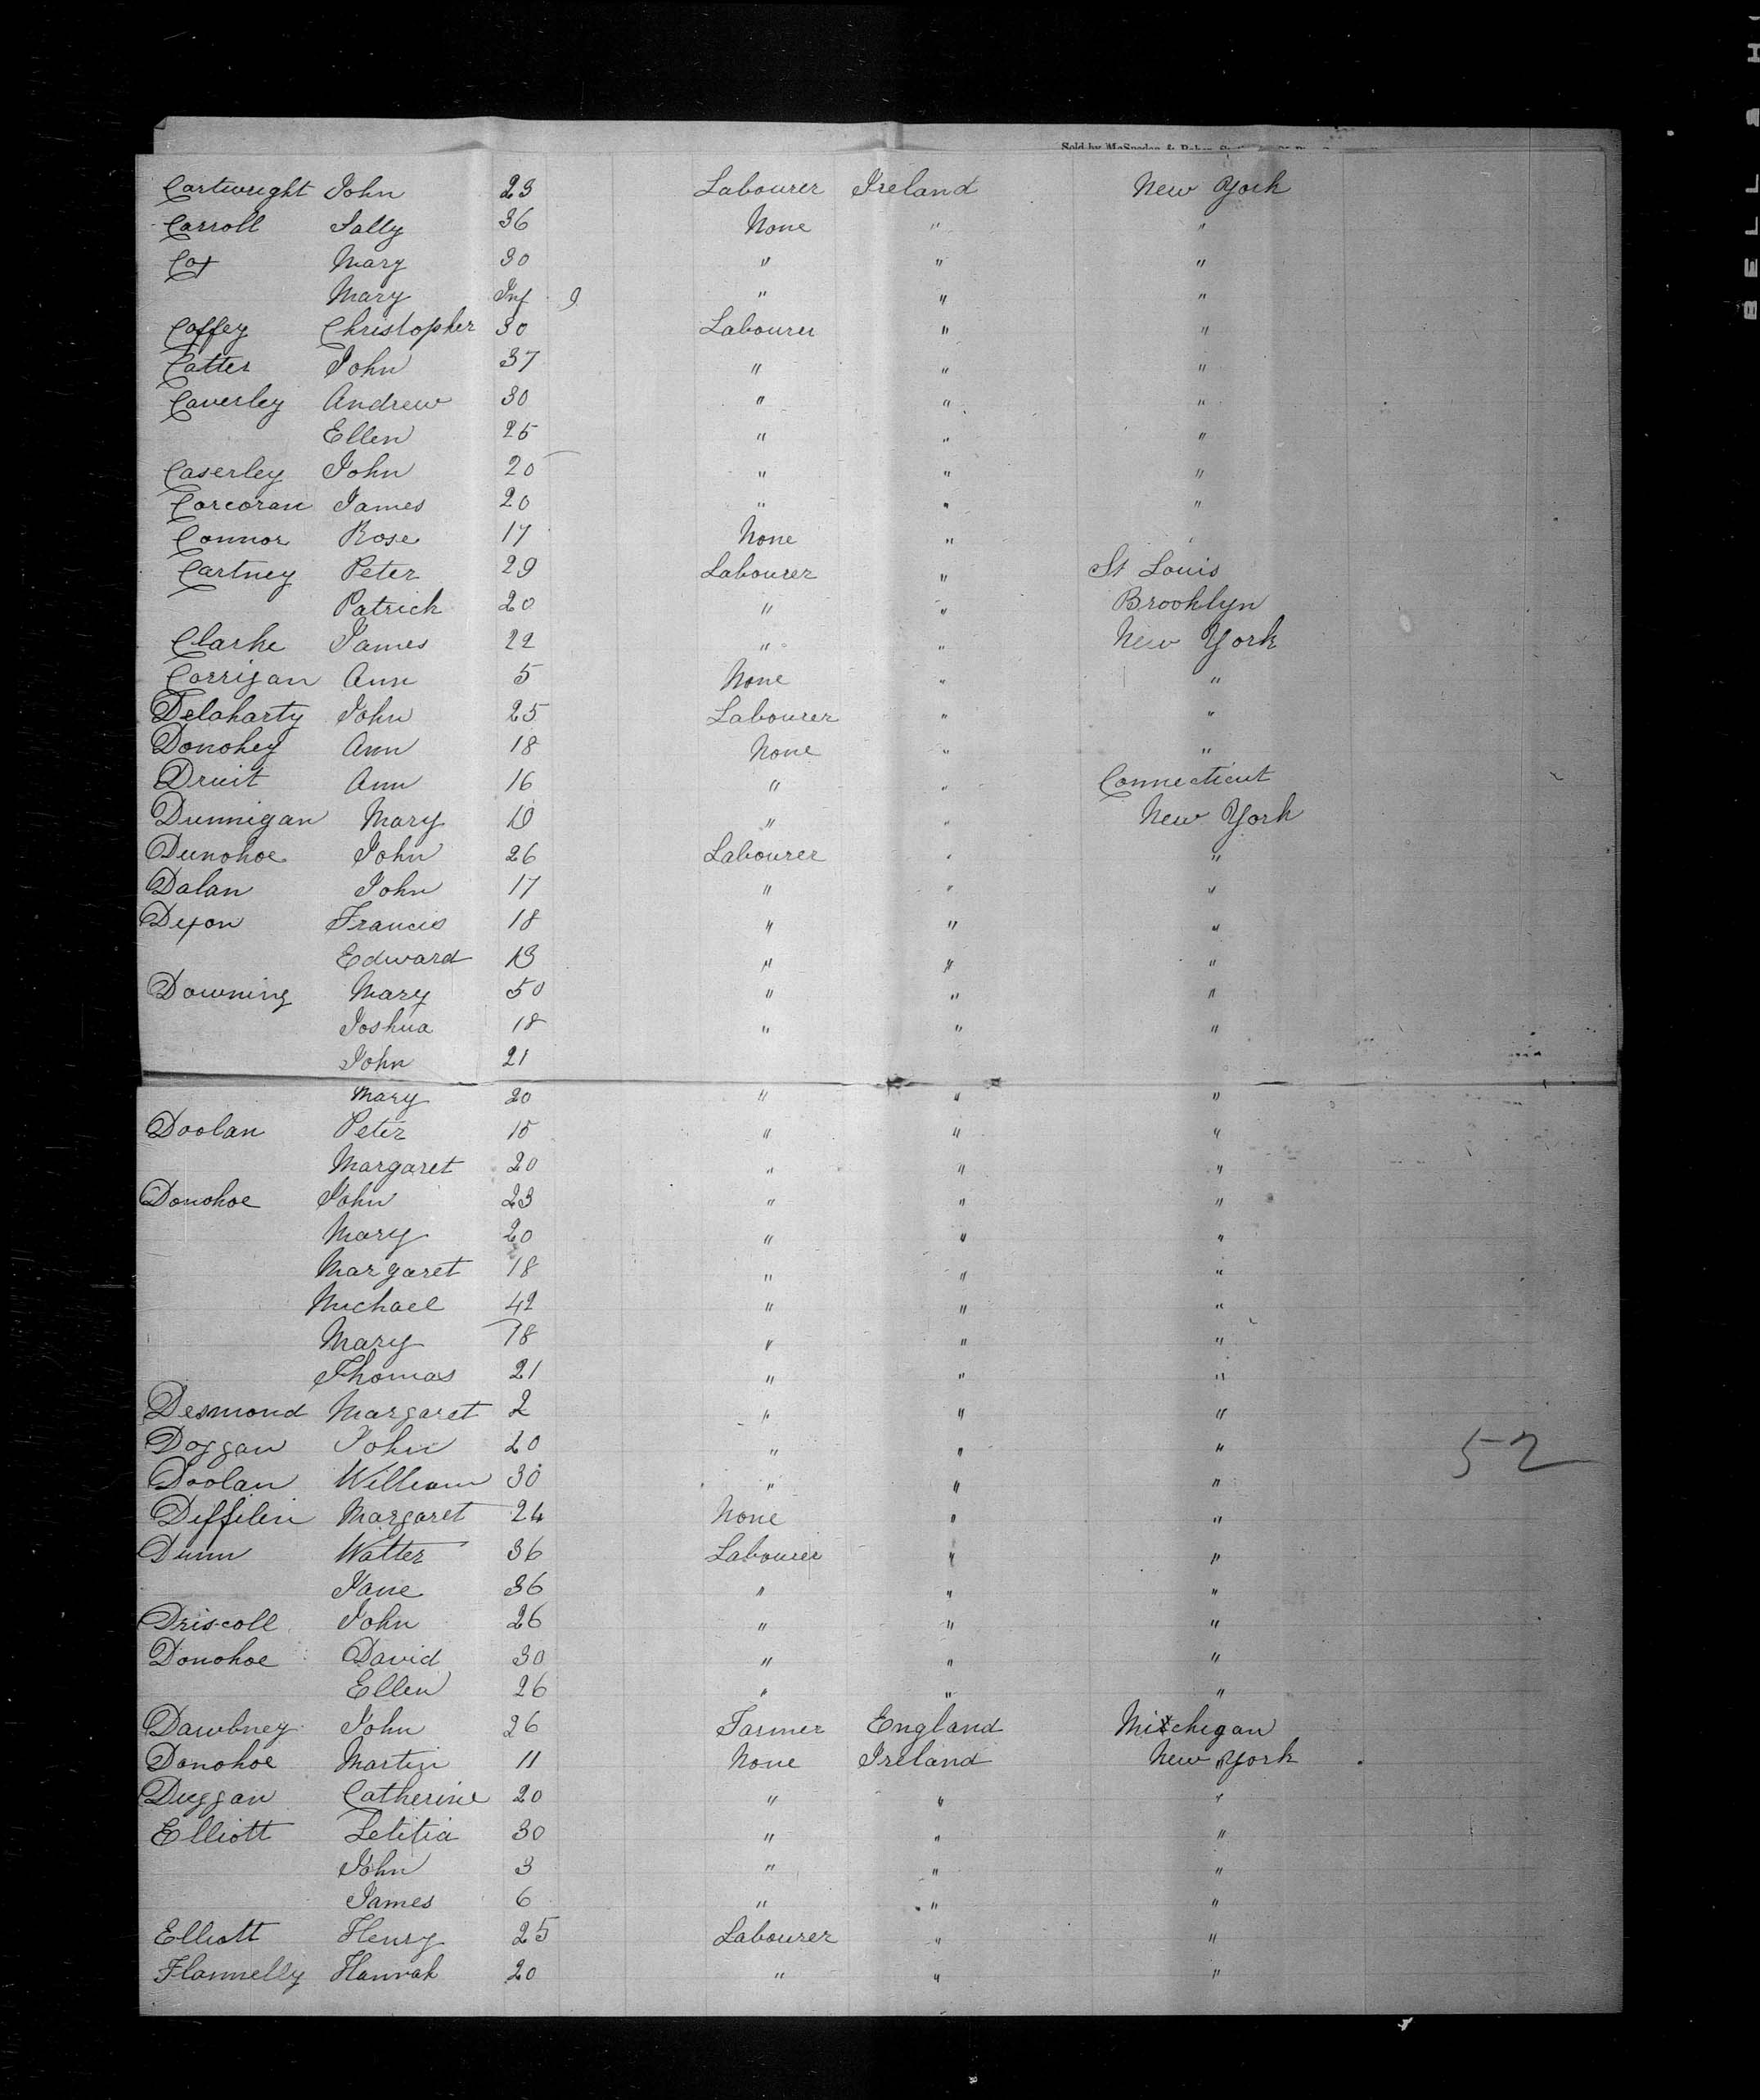 Sold by McSpedon & Baker, Stationers
Cartwright John 23 Labourer Ireland New York
Carroll Sally 36 None " "
Cox Mary 30 " " "
Mary Inf 9 " " "
Caffey Christopher 30 Labourer " "
Catter John 37 " " "
Caverley Andrew 30 " " "
Ellen 25 " " "
Caserley John 20 " " "
Corcoran James 20 " " "
Connor Rose 17 None " "
Cartney Peter 29 Labourer " St Louis
Patrick 20 " " Brooklyn
Clarke James 22 " " New York
Corrigan Ann 5 None " "
Delaharty John 25 Labourer " "
Donohey Ann 18 None " "
Druit Ann 16 " " Connecticut
Dunnigan Mary 19 " " New York
Dunohoe John 26 Labourer " "
Dalan John 17 " " "
Dyon Francis 18 " " "
Edward 13 " " "
Downing Mary 50 " " "
Joshua 18 " " "
John 21
Mary 20 " " "
Doolan Peter 15 " " "
Margaret 20 " " "
Donohoe John 23 " " "
Mary 20 " " "
Margaret 18 " " "
Michael 42 " " "
Mary 18 " " "
Thomas 21 " " "
Desmond Margaret 2 " " "
Doggan John 20 " " "
52
Doolan William 30 " " "
Diffilin Margaret 24 None " "
Dunn Walter 36 Labourer " "
Jane 36 " " "
Driscoll John 26 " " "
Donohoe David 30 " " "
Ellen 26 " " "
Dawbney John 26 Farmer England Michigan
Donohoe Martin 11 None Ireland New York
Duggan Catherine 20 " " "
Elliott Letitia 30 " " "
John 3 " " "
James 6 " " "
Elliott Henry 25 Labourer " "
Flannelly Hannah 20 " " "
BELL & H